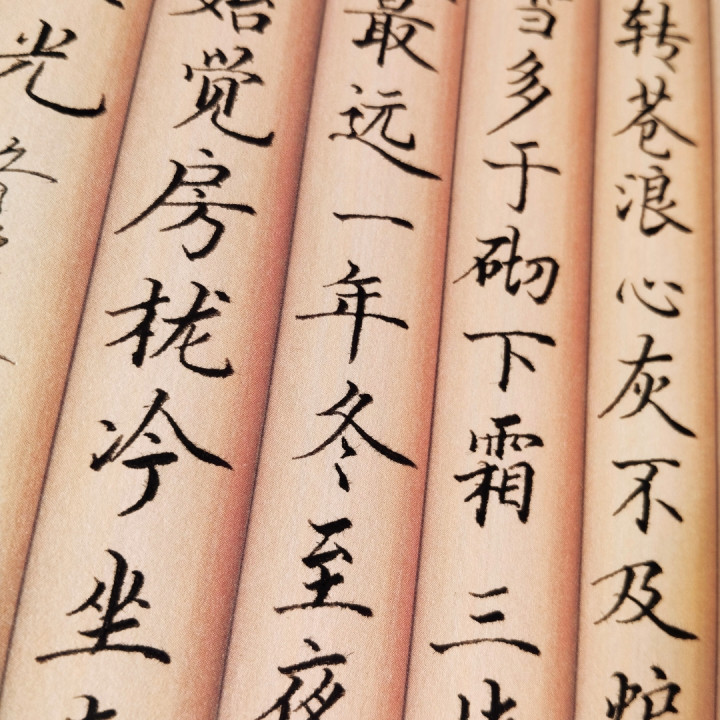 转苍浪心灰不及炉
当多于砌下霜三
最远一年冬至夜
始觉房栊冷坐
光